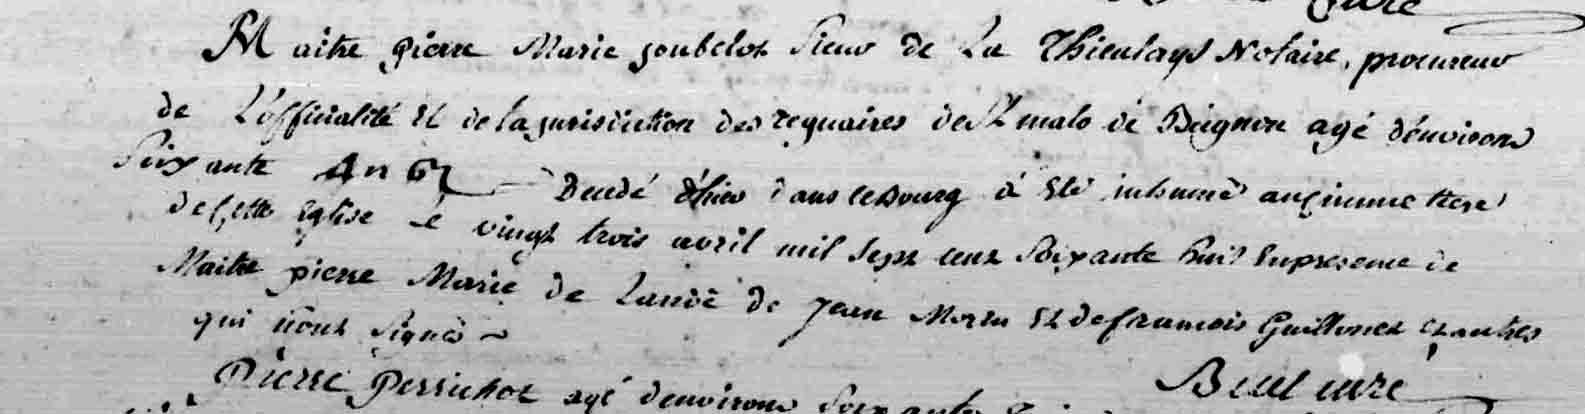 Curé
Maitre pierre Marie joubelot Sieur de La Thieulays Notaire, procureur
de L'officialité Et de la jurisdiction des reguaires de St malo de Beignon agé d'environ
Soixante Decedé d'hier dans le Bourg à Eté inhumé au cimmetiere
de cette Eglise Le vingt trois avril mil sept cent soixante huit En presence de
Maitre pierre Marie de Lande de jean Morin Et de francois Guillouet et autres
qui n'ont signés
Buul curé
Pierre Perrichot agé d'environ Soixante